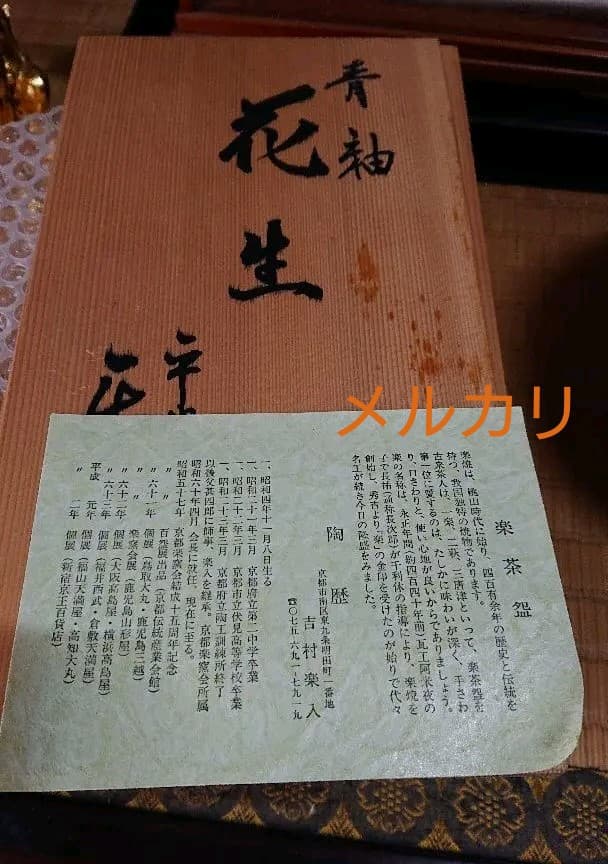 青釉
花生
メルカリ
楽茶盌
楽焼は、桃山時代に始り、四百有余年の歴史と伝統を
持つ、我国独特の焼物であります。
古来茶人は、一楽、二萩、三唐津といって、楽茶盌を
第一位に愛するのは、たしかに味わいが深く、手ざわ
り、口ざわりと、使い心地が良いからでありましょう。
楽の名称は、永正年間(約四百四十年前)瓦工阿米夜の
子で長祐(通称長次郎)が千利休の指導により、楽焼を
創始し、秀吉より「楽」の金印を受けたのが始りで代々
名工が続き今日の隆盛をみました。
陶歴
京都市南区東九条明田町一番地
吉村楽入
☎〇七五-六九一-七九一九
一、昭和四年十一月八日生る
一、昭和二十一年三月 京都府立第二中学卒業
一、昭和二十二年三月 京都市立伏見高等学校卒業
一、昭和二十三年三月 京都府立陶工訓練所終了
以後父甚四郎に師事、楽入を継承、京都楽窯会所属
昭和六十年四月 会長に就任、現在に至る。
昭和五十七年 京都楽窯会結成十五周年記念
〃 〃 百盌展出品(京都伝統産業会館)
〃 六十一年 個展(鳥取大丸・鹿児島三越)
〃 〃 楽窯会展(鹿児島山形屋)
〃 六十二年 個展(大阪高島屋・横浜高島屋)
〃 六十三年 個展(福井西武・倉敷天満屋)
平成 元年 個展(福山天満屋・高知大丸)
〃 二年 個展(新宿京王百貨店)